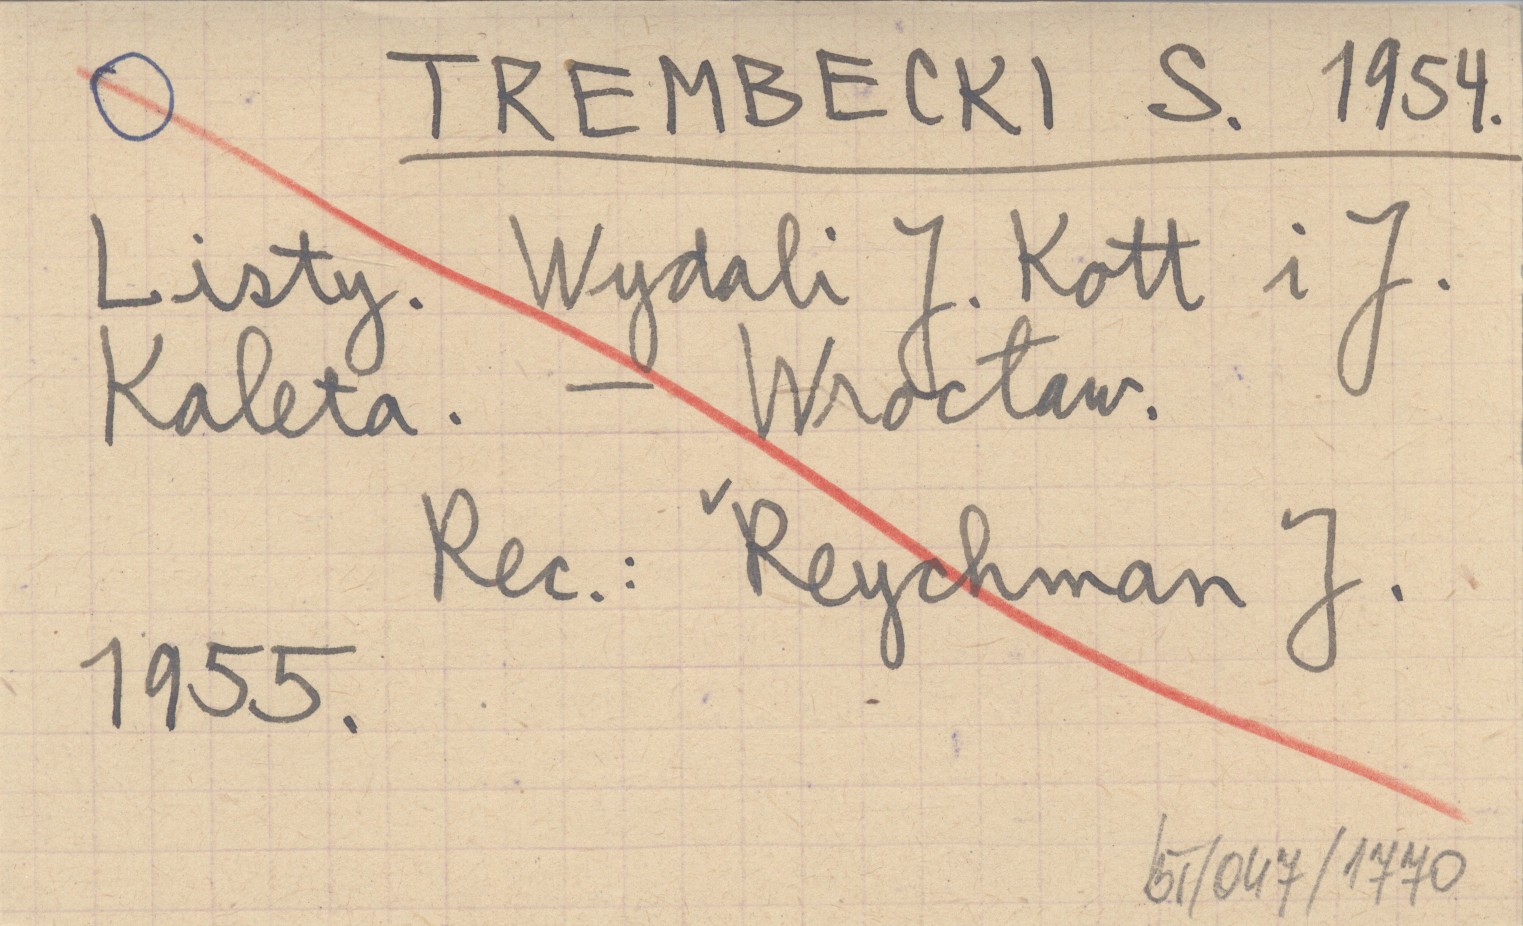 TREMBECKI S. 1954.
Listy. Wydali J. Kott i J.
Kaleta. — Wrocław.
Rec.: ✓Reychman J.
1955.
/047/1770